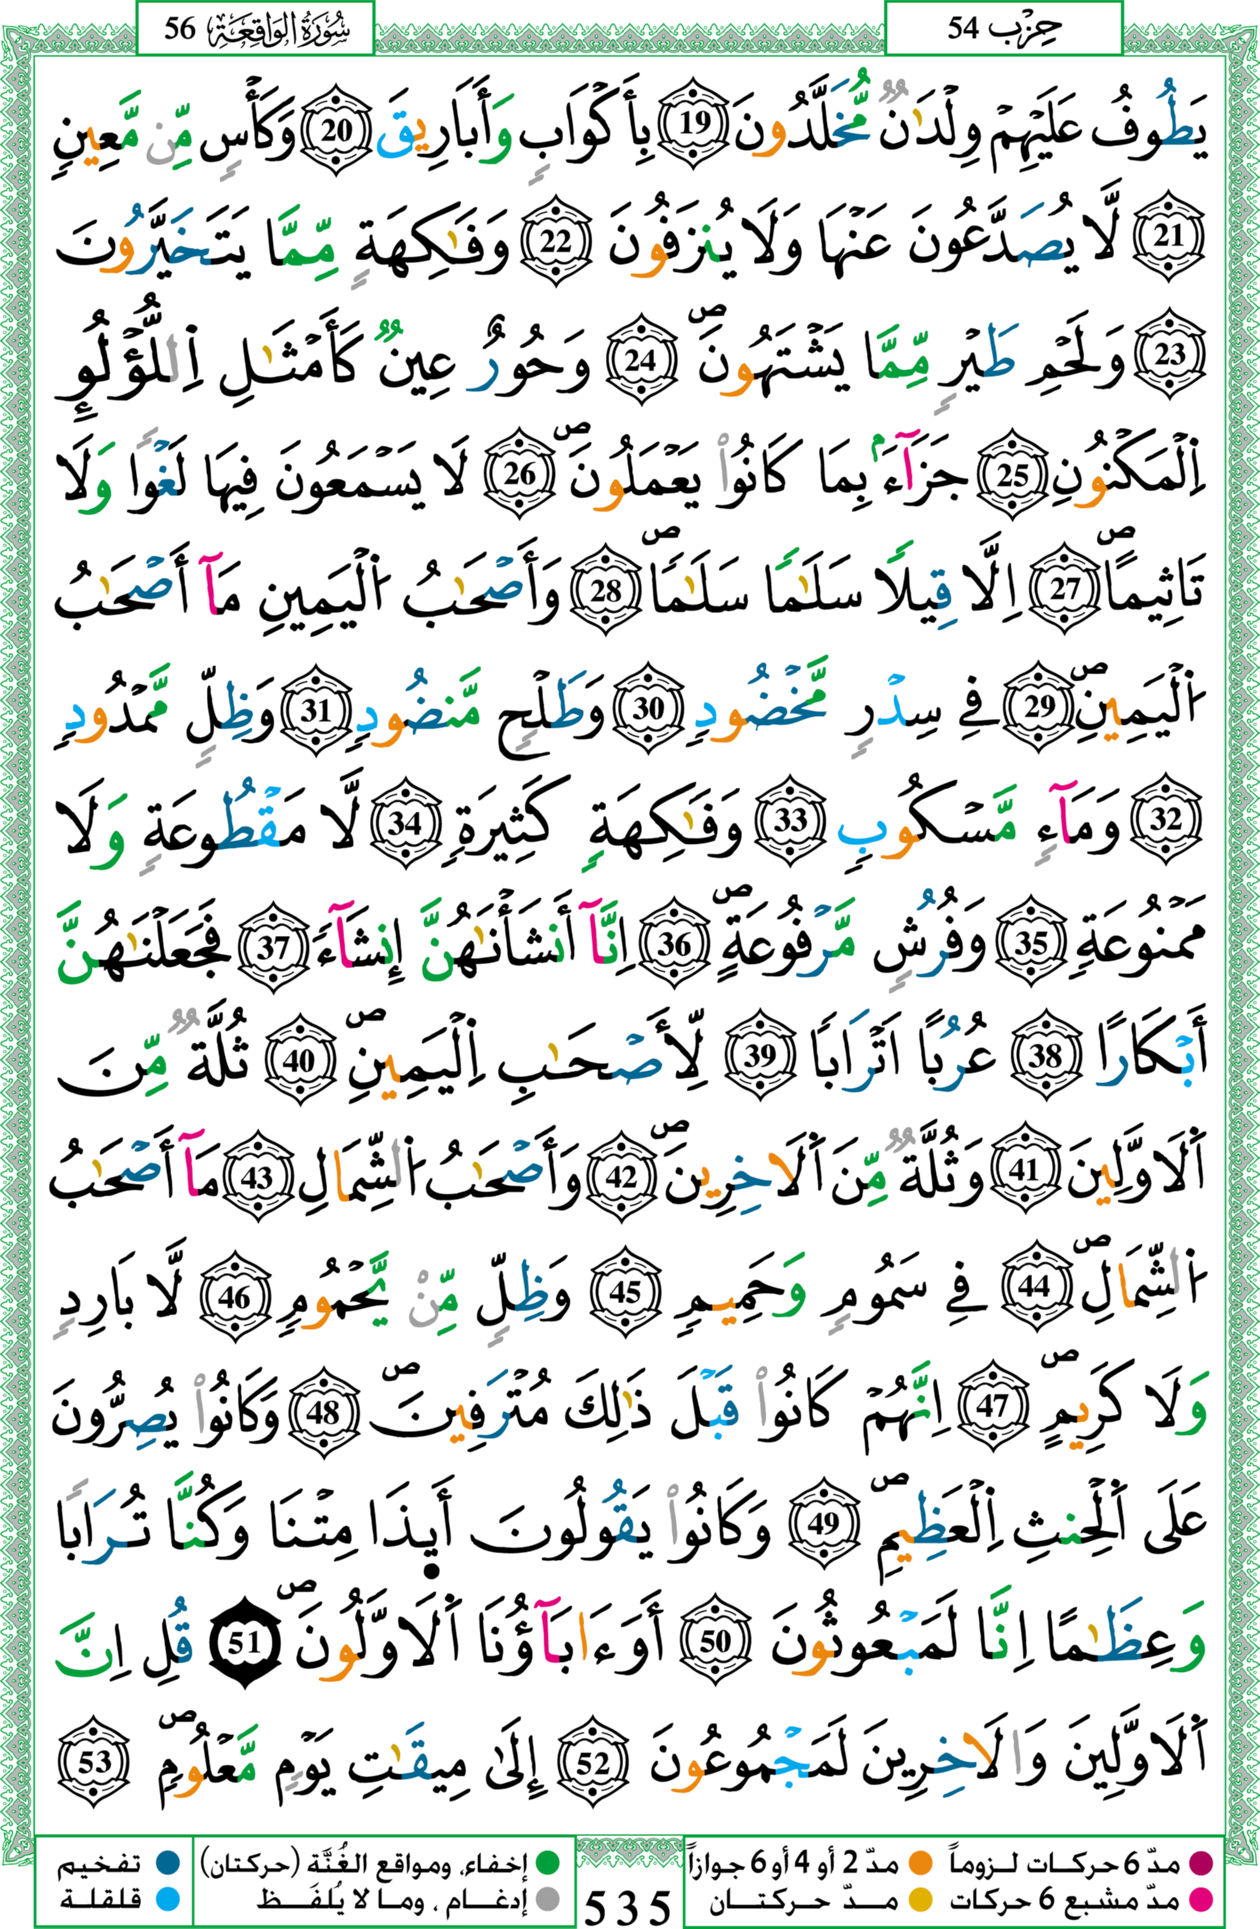 حِزْب 54
سُورَةُ الوَاقِعَة 56
يَطُوفُ عَلَيْهِمْ وِلْدَٰنٌ مُّخَلَّدُونَ 19 بِأَكْوَابٍ وَأَبَارِيقَ 20 وَكَأْسٍ مِّن مَّعِينٍ
21 لَّا يُصَدَّعُونَ عَنْهَا وَلَا يُنزَفُونَ 22 وَفَٰكِهَةٍ مِّمَّا يَتَخَيَّرُونَ
23 وَلَحْمِ طَيْرٍ مِّمَّا يَشْتَهُونَ ۖ 24 وَحُورٌ عِينٌ كَأَمْثَٰلِ اِ۬للُّؤْلُوِٕ
اِ۬لْمَكْنُونِ 25 جَزَآءَۢ بِمَا كَانُواْ يَعْمَلُونَ ۖ 26 لَا يَسْمَعُونَ فِيهَا لَغْوًا وَلَا
تَاثِيمًا ۖ 27 اِلَّا قِيلًا سَلَٰمًا سَلَٰمًا ۖ 28 وَأَصْحَٰبُ اُ۬لْيَمِينِ مَآ أَصْحَٰبُ
اُ۬لْيَمِينِ ۖ 29 فِے سِدْرٍ مَّخْضُودٍ 30 وَطَلْحٍ مَّنضُودٍ 31 وَظِلٍّ مَّمْدُودٍ
32 وَمَآءٍ مَّسْكُوبٍ 33 وَفَٰكِهَةٍ كَثِيرَةٍ 34 لَّا مَقْطُوعَةٍ وَلَا
مَمْنُوعَةٍ 35 وَفُرُشٍ مَّرْفُوعَةٍ ۖ 36 اِنَّآ أَنشَأْنَٰهُنَّ إِنشَآءً 37 فَجَعَلْنَٰهُنَّ
أَبْكَارًا 38 عُرُبًا اَتْرَابًا 39 لِّأَصْحَٰبِ اِ۬لْيَمِينِ ۖ 40 ثُلَّةٌ مِّنَ
اَ۬لَاوَّلِينَ 41 وَثُلَّةٌ مِّنَ اَ۬لَاخِرِينَ ۖ 42 وَأَصْحَٰبُ اُ۬لشِّمَالِ 43 مَآ أَصْحَٰبُ
اُ۬لشِّمَالِ ۖ 44 فِے سَمُومٍ وَحَمِيمٍ 45 وَظِلٍّ مِّنْ يَّحْمُومٍ 46 لَّا بَارِدٍ
وَلَا كَرِيمٍ ۖ 47 اِنَّهُمْ كَانُواْ قَبْلَ ذَٰلِكَ مُتْرَفِينَ ۖ 48 وَكَانُواْ يُصِرُّونَ
عَلَى اَ۬لْحِنثِ اِ۬لْعَظِيمِ ۖ 49 وَكَانُواْ يَقُولُونَ أَيِٕذَا مِتْنَا وَكُنَّا تُرَابًا
وَعِظَٰمًا اِنَّا لَمَبْعُوثُونَ 50 أَوَءَابَآؤُنَا اَ۬لَاوَّلُونَ ۖ 51 قُلِ اِنَّ
اَ۬لَاوَّلِينَ وَالَاخِرِينَ لَمَجْمُوعُونَ 52 إِلَىٰ مِيقَٰتِ يَوْمٍ مَّعْلُومٍ ۖ 53
مدّ 6 حركات لـزوماً مدّ 2 أو 4 أو 6 جوازاً إخفاء، ومواقع الغُنَّة (حركتان) تفخيم
مدّ مشبع 6 حركات مــدّ حركتــان 535 إدغــام ، ومـا لا يُلفَــظ قلقلـة